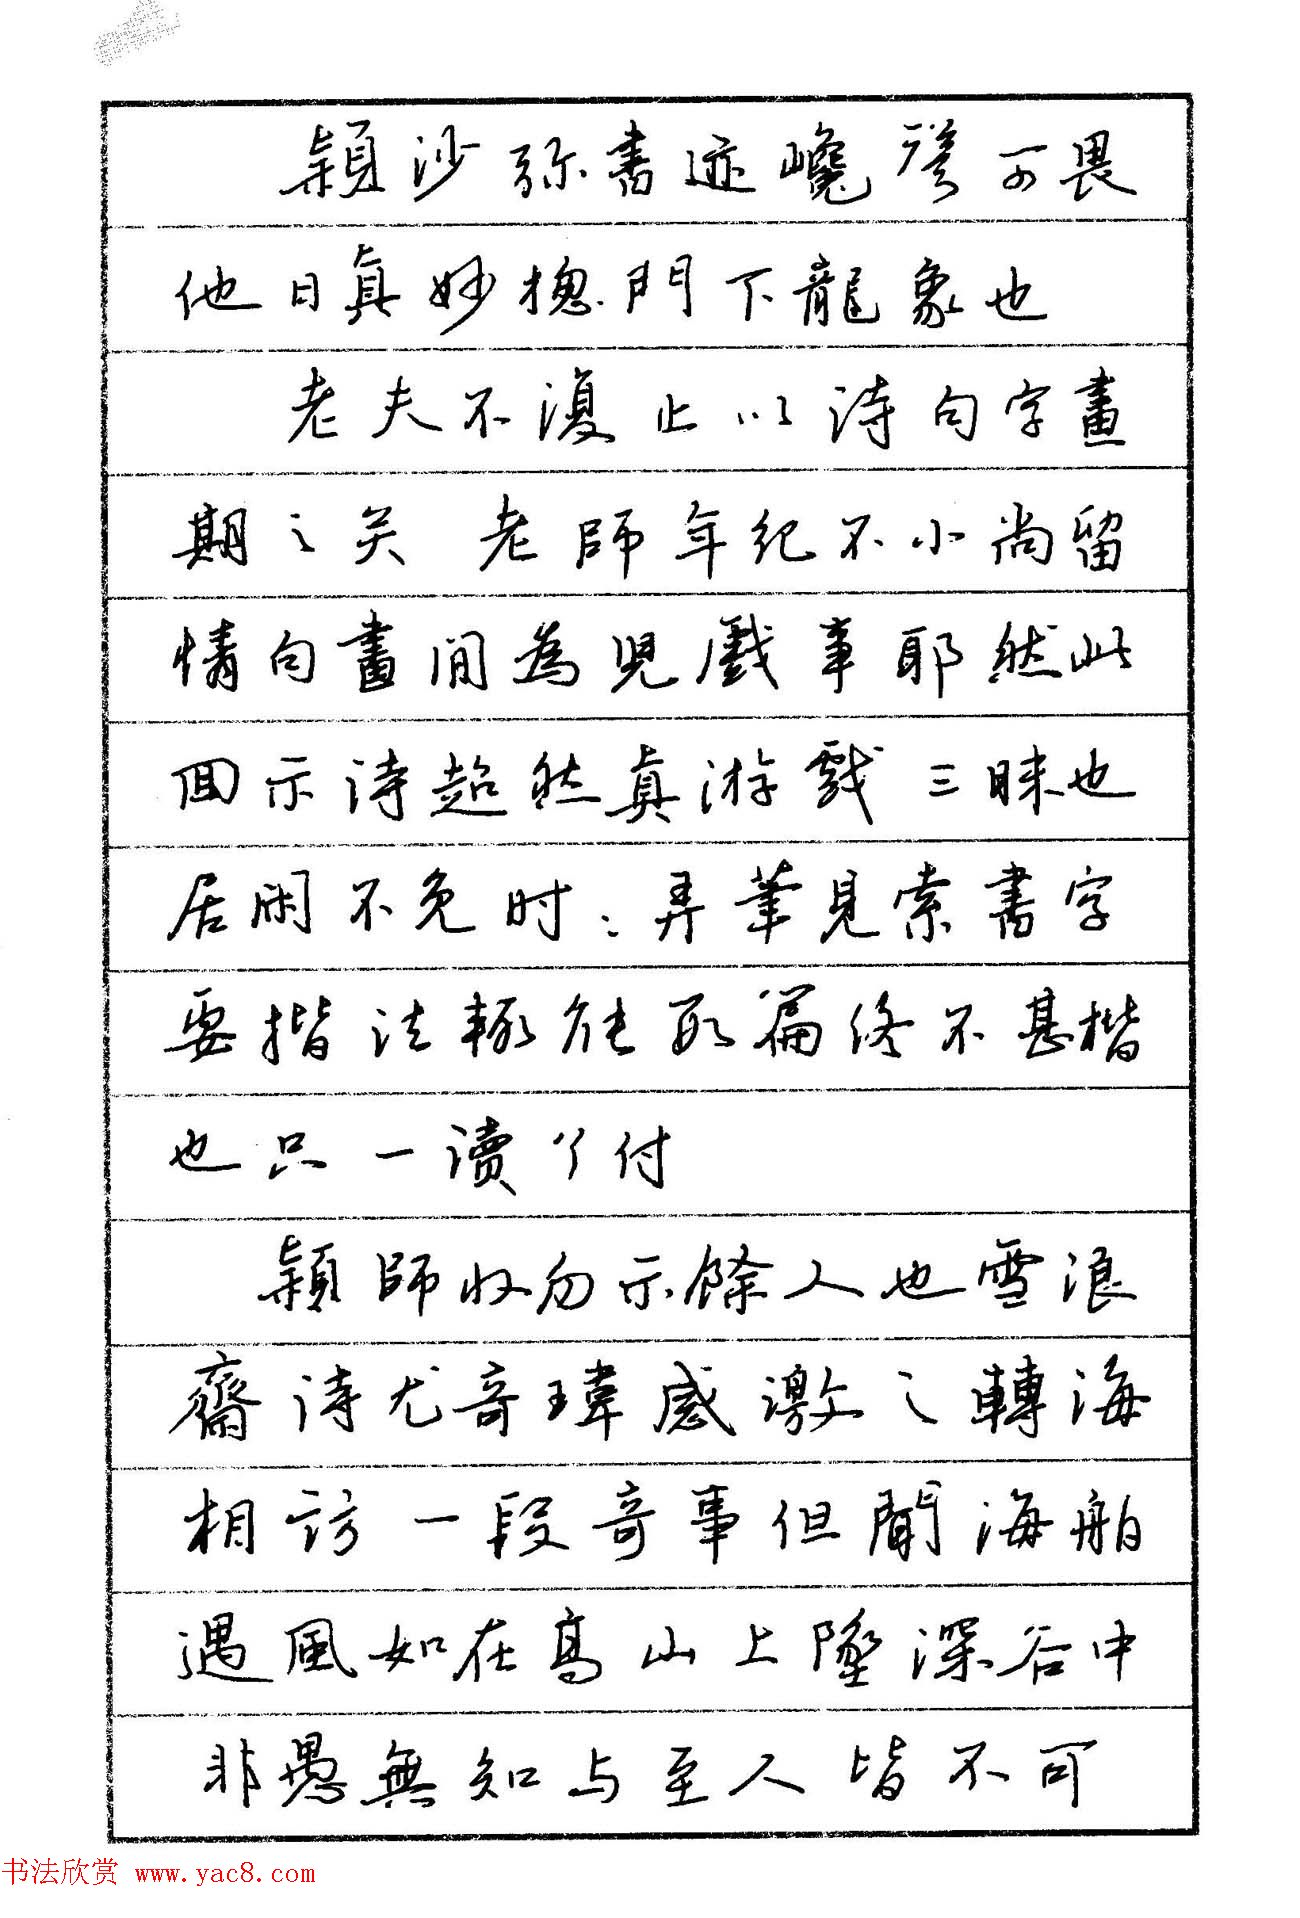 颖沙弥書迹巉聳可畏
他日真妙摠門下龍象也
老夫不復止以诗句字畫
期之矣 老師年纪不小尚留
情句畫间為兒戲事耶然此
回示诗超然真游戲三昧也
居闲不免时：弄筆見索書字
要揩法輙往数篇终不甚楷
也只一讀了付
颖師收勿示餘人也雪浪
齋诗尤奇瑋感激之轉海
相访一段奇事但聞海舶
遇風如在高山上墜深谷中
非愚無知与至人皆不可
书法欣赏 www.yac8.com